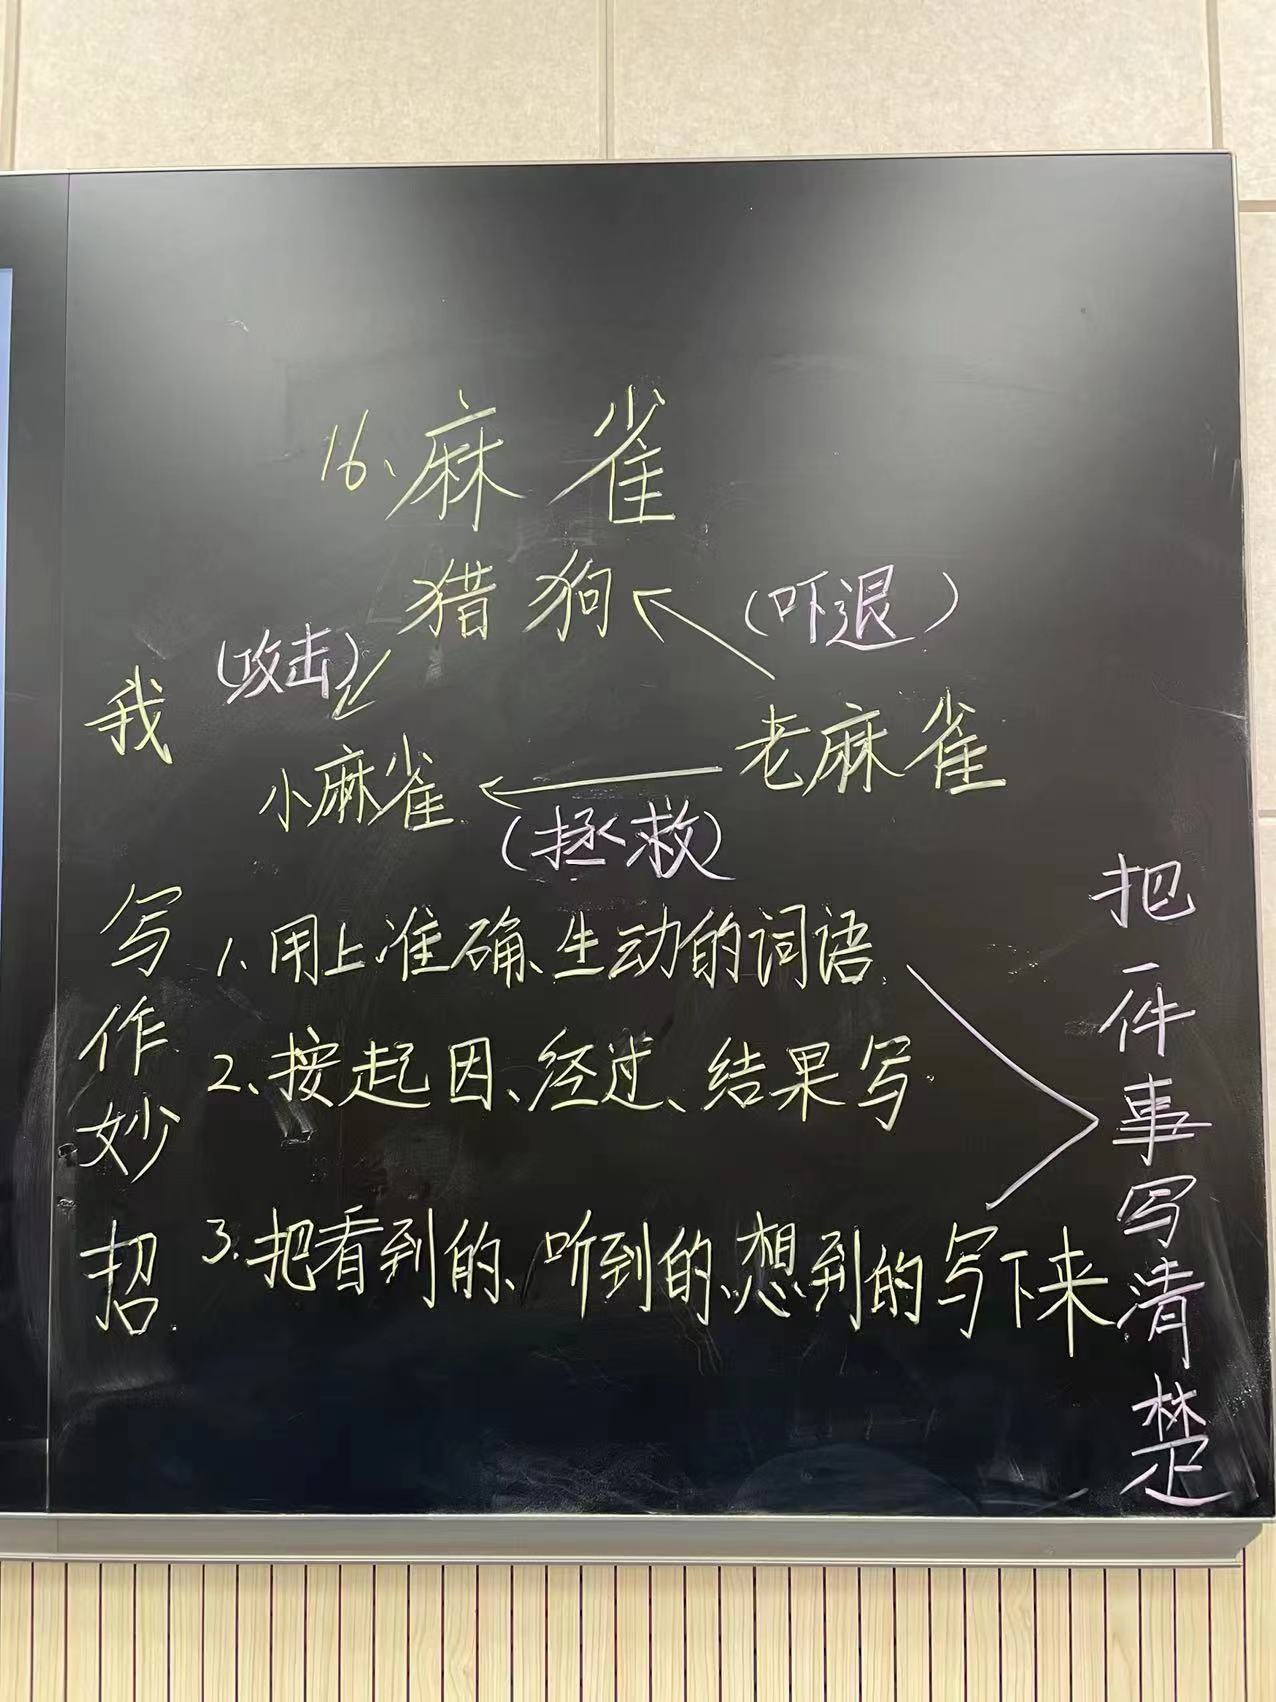 16、麻雀
猎狗
(吓退)
(攻击)
我
小麻雀
老麻雀
(拯救)
写作妙招
1、用上准确、生动的词语
2、按起因、经过、结果写
3、把看到的、听到的、想到的写下来
把一件事写清楚